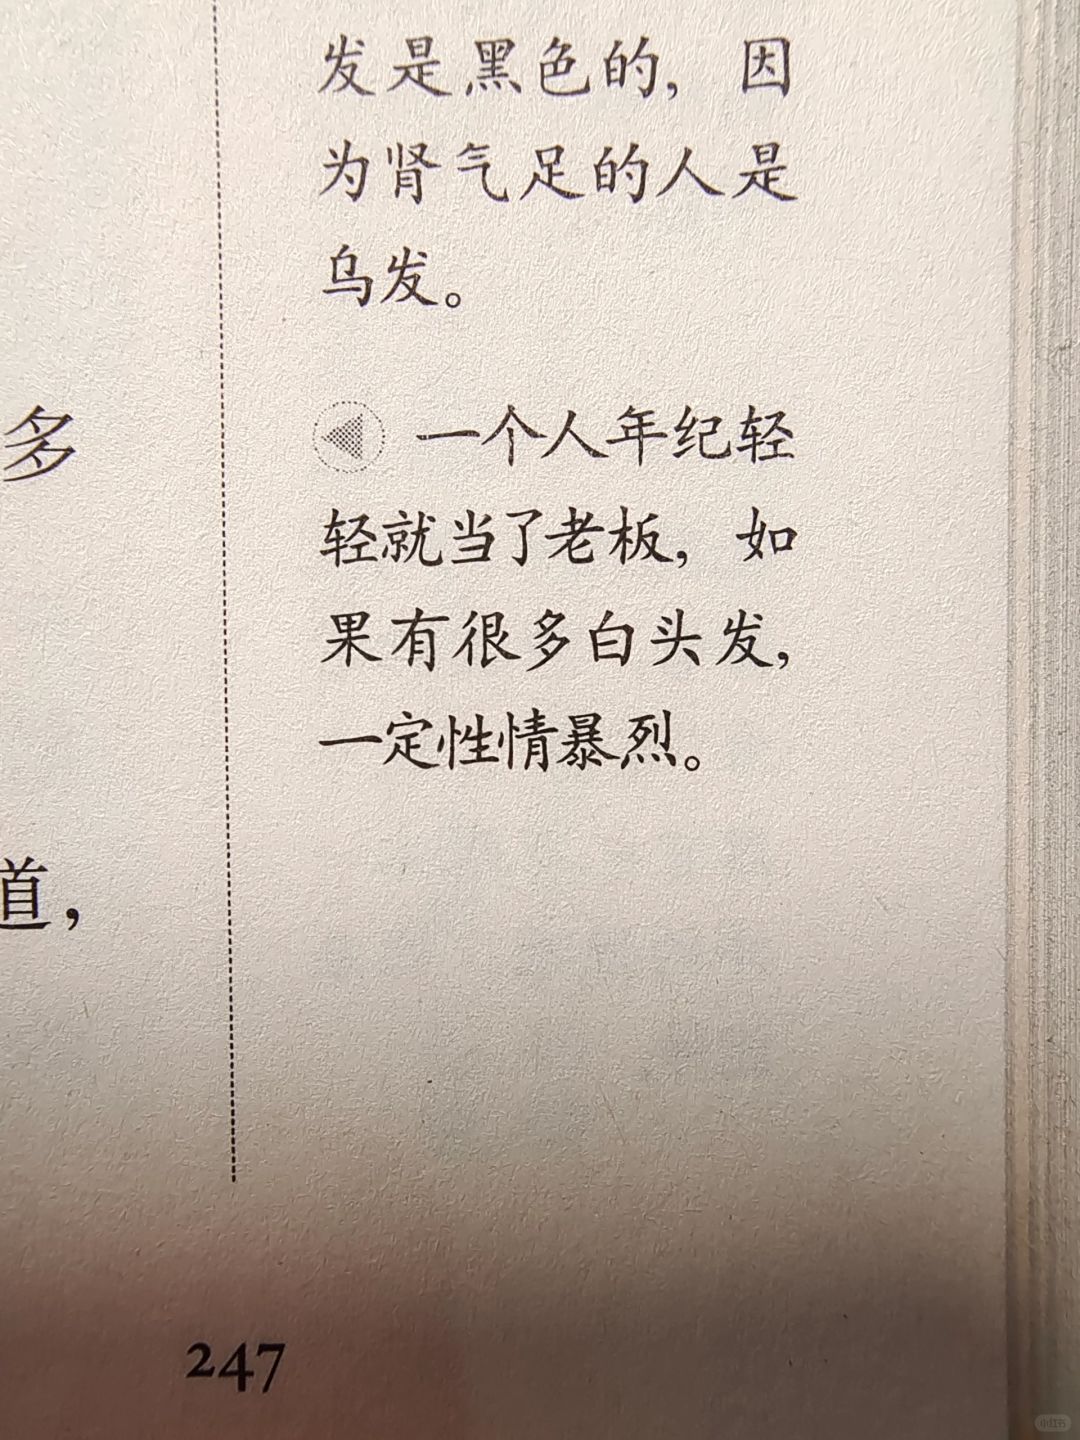 发是黑色的，因
为肾气足的人是
乌发。
多
一个人年纪轻
轻就当了老板，如
果有很多白头发，
一定性情暴烈。
道，
247
小红书